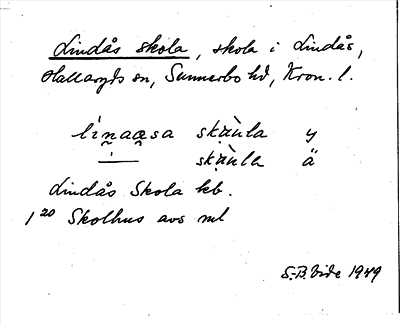 Lindås skola, skola i Lindås,
Hallaryds sn, Sunnerbo hd, Kron. l.
lìn̰aæ̰sa skæ̀ùla y
—̇ skæ̀ùla ä
Lindås Skola kb.
1²⁰ Skolhus avs ml
S.-B. Vide 1949